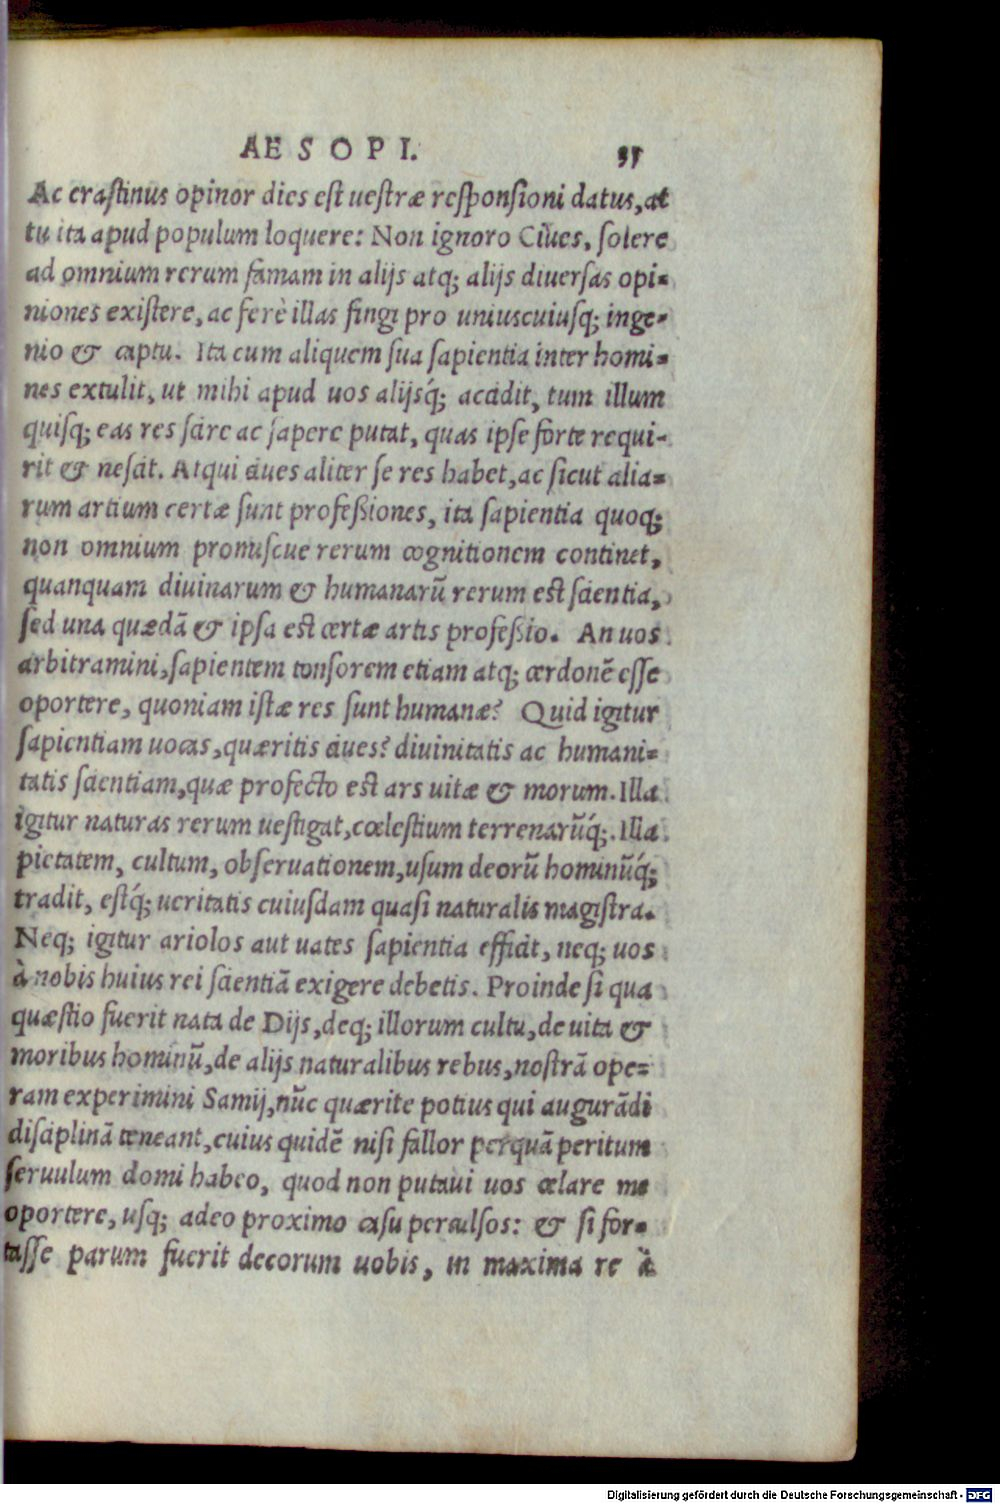 AESOPI. 35
Ac crastinus opinor dies est uestræ responsioni datus, at
tu ita apud populum loquere: Non ignoro Ciues, solere
ad omnium rerum famam in alijs atq; alijs diuersas opi-
niones existere, ac ferè illas fingi pro uniuscuiusq; inge-
nio & captu. Ita cum aliquem sua sapientia inter homi-
nes extulit, ut mihi apud uos alijsq́; accidit, tum illum
quisq; eas res scire ac sapere putat, quas ipse forte requi-
rit & nescit. Atqui ciues aliter se res habet, ac sicut alia-
rum artium certæ sunt professiones, ita sapientia quoq;
non omnium promiscue rerum cognitionem continet,
quanquam diuinarum & humanarũ rerum est scientia,
sed una quædã & ipsa est certæ artis professio. An uos
arbitramini, sapientem tonsorem etiam atq; cerdonẽ esse
oportere, quoniam istæ res sunt humanæ? Quid igitur
sapientiam uocas, quæritis ciues? diuinitatis ac humani-
tatis scientiam, quæ profecto est ars uitæ & morum. Illa
igitur naturas rerum uestigat, cœlestium terrenarũq́;. Illa
pietatem, cultum, obseruationem, usum deorũ hominũq́;
tradit, estq́; ueritatis cuiusdam quasi naturalis magistra.
Neq; igitur ariolos aut uates sapientia efficit, neq; uos
à nobis huius rei scientiã exigere debetis. Proinde si qua
quæstio fuerit nata de Dijs, deq; illorum cultu, de uita &
moribus hominũ, de alijs naturalibus rebus, nostrã ope-
ram experimini Samij, nũc quærite potius qui augurãdi
disciplinã teneant, cuius quidẽ nisi fallor perquã peritum
seruulum domi habeo, quod non putaui uos celare me
oportere, usq; adeo proximo casu perculsos: & si for-
tasse parum fuerit decorum uobis, in maxima re à
Digitalisierung gefördert durch die Deutsche Forschungsgemeinschaft - DFG